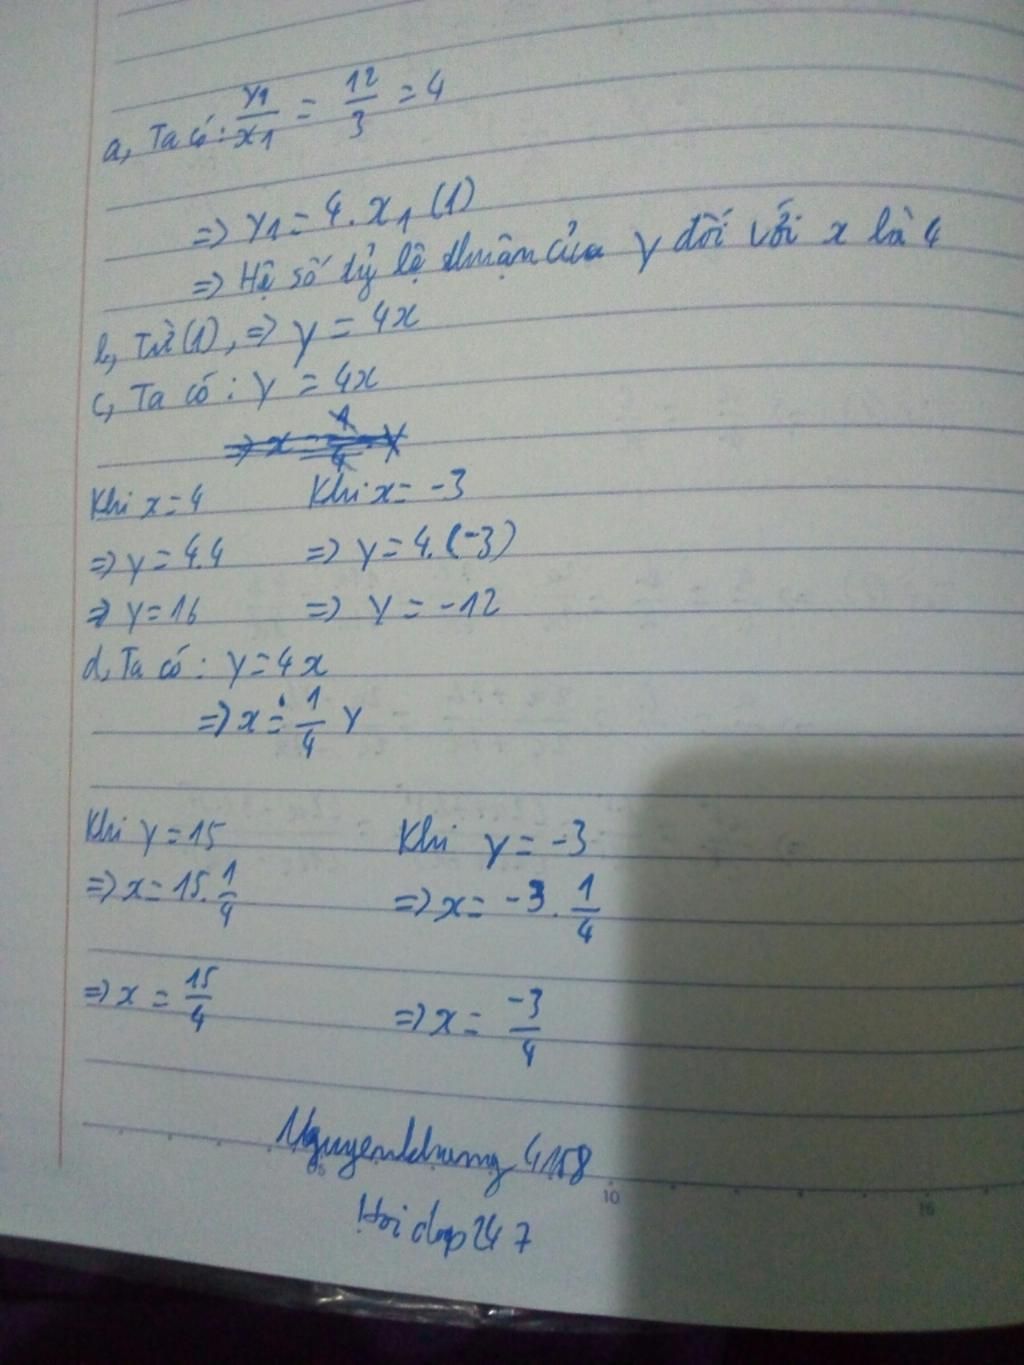 a, Ta có: y1/x1 = 12/3 = 4
=> y1 = 4.x1 (1)
=> Hệ số tỷ lệ thuận của y đối với x là 4
b, Từ (1), => y = 4x
c, Ta có: y = 4x
=> x = 1/4 y
Khi x = 4 Khi x = -3
=> y = 4.4 => y = 4.(-3)
=> y = 16 => y = -12
d, Ta có: y = 4x
=> x = 1/4 y
Khi y = 15 Khi y = -3
=> x = 15.1/4 => x = -3.1/4
=> x = 15/4 => x = -3/4
Nguyenkhung4158
Hoidap247
10